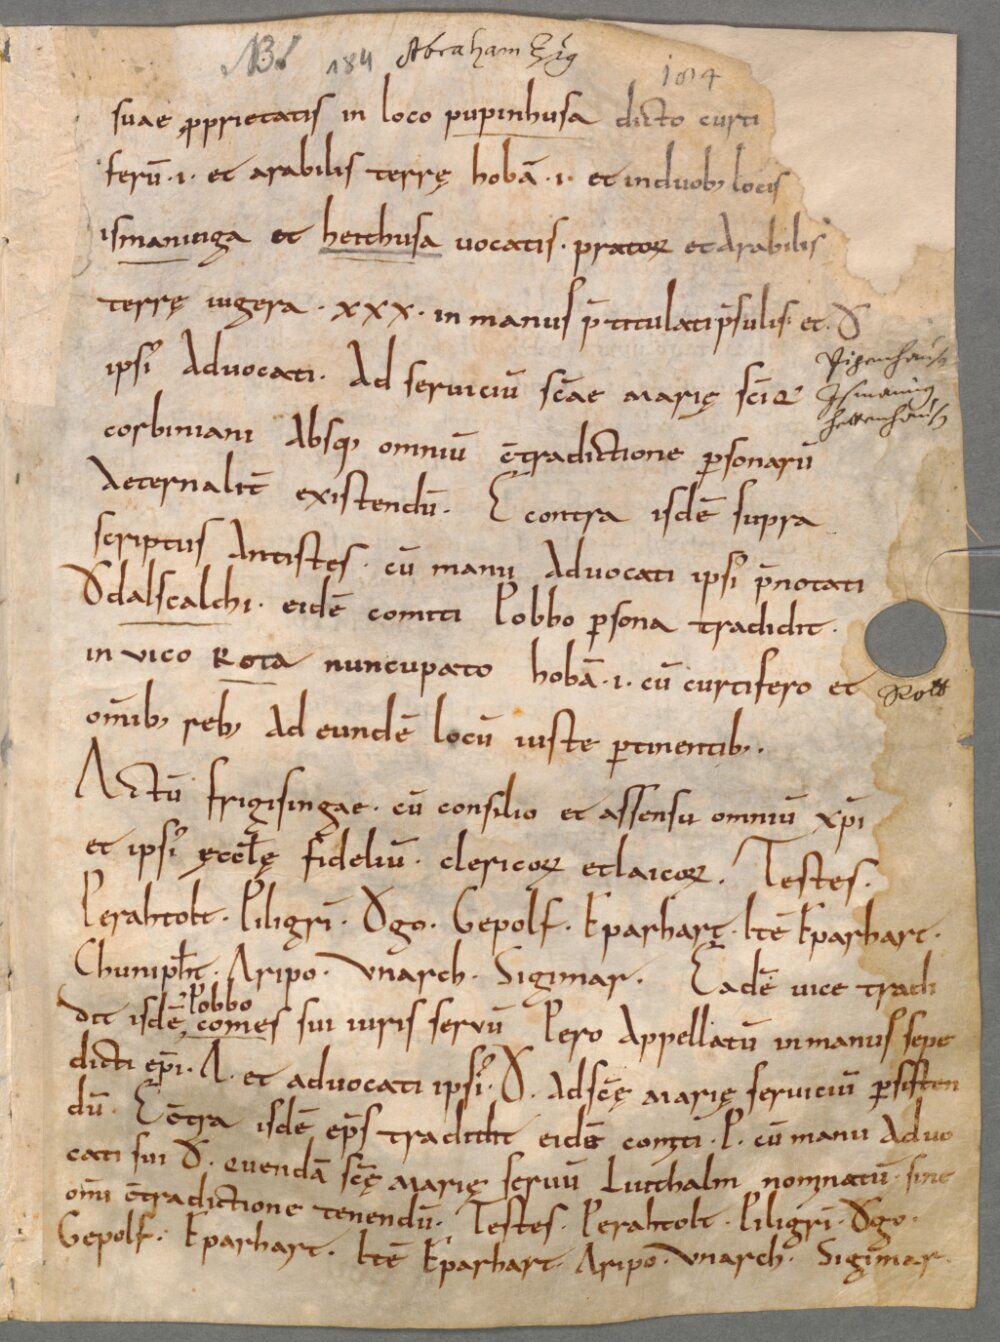 NB. 184 Abraham Epĩ 1014
suae ꝓprietatis in loco pupinhusa dicto curti
ferũ ·i· et arabilis terrę hobã ·i· et in duob; locis
ismaninga et hettihusa uocatis · pratoꝝ et arabilis
terrę iugera · xxx · in manus p̄titulati p̄sulis · et · O͛
ipsi͛ Aduocati · Ad seruiciũ scãe MARię scĩq;
Pipenhausen
Ismaning
Hettenhausen
corbiniani Absq; omniũ c̄tradictione ꝑsonarũ
Aeternalit̃ existendũ. E contra isdẽ supra
scriptus Antistes · cũ manu Aduocati ipsi͛ p̄notati
Odalscalchi · eidẽ comiti Pobbo ꝑsona tradidit ·
in vico Rota nuncupato hobã ·i· cũ curtifero et
Rott
om̃ib; reb; Ad eundẽ locũ iuste ꝑtinentib; .
Actũ frigisingae · cũ consilio et assensu omniũ xp̃i
et ipsi͛ ęcclę fideliũ · clericoꝝ et laicoꝝ. Testes ·
Perahtolt · Piligrĩ · Ogo · Gepolf · Eparhart · Itẽ Eparhart ·
Chunip̃ht · Aripo · Unarch · Sigimar. Eadẽ uice tradi
dit isdẽ Pobbo comes sui iuris seruũ Pero Appellatũ in manus sepe
dicti ep̃i · A · et aduocati ipsi͛ · O · Ad scę̃ MARię seruiciũ ꝑsisten
dũ · E c̄tra isdẽ ep̃s tradidit eidẽ comiti · P · cũ manu Aduo
cati sui O · quendã scę̃ MARię seruũ Luithalm nominatũ · sine
om̃i c̄tradictione tenendũ · Testes · Perahtolt · Piligrĩ · Ogo ·
Gepolf · Eparhart · Itẽ Eparhart · Aripo · Unarch · Sigimar ·